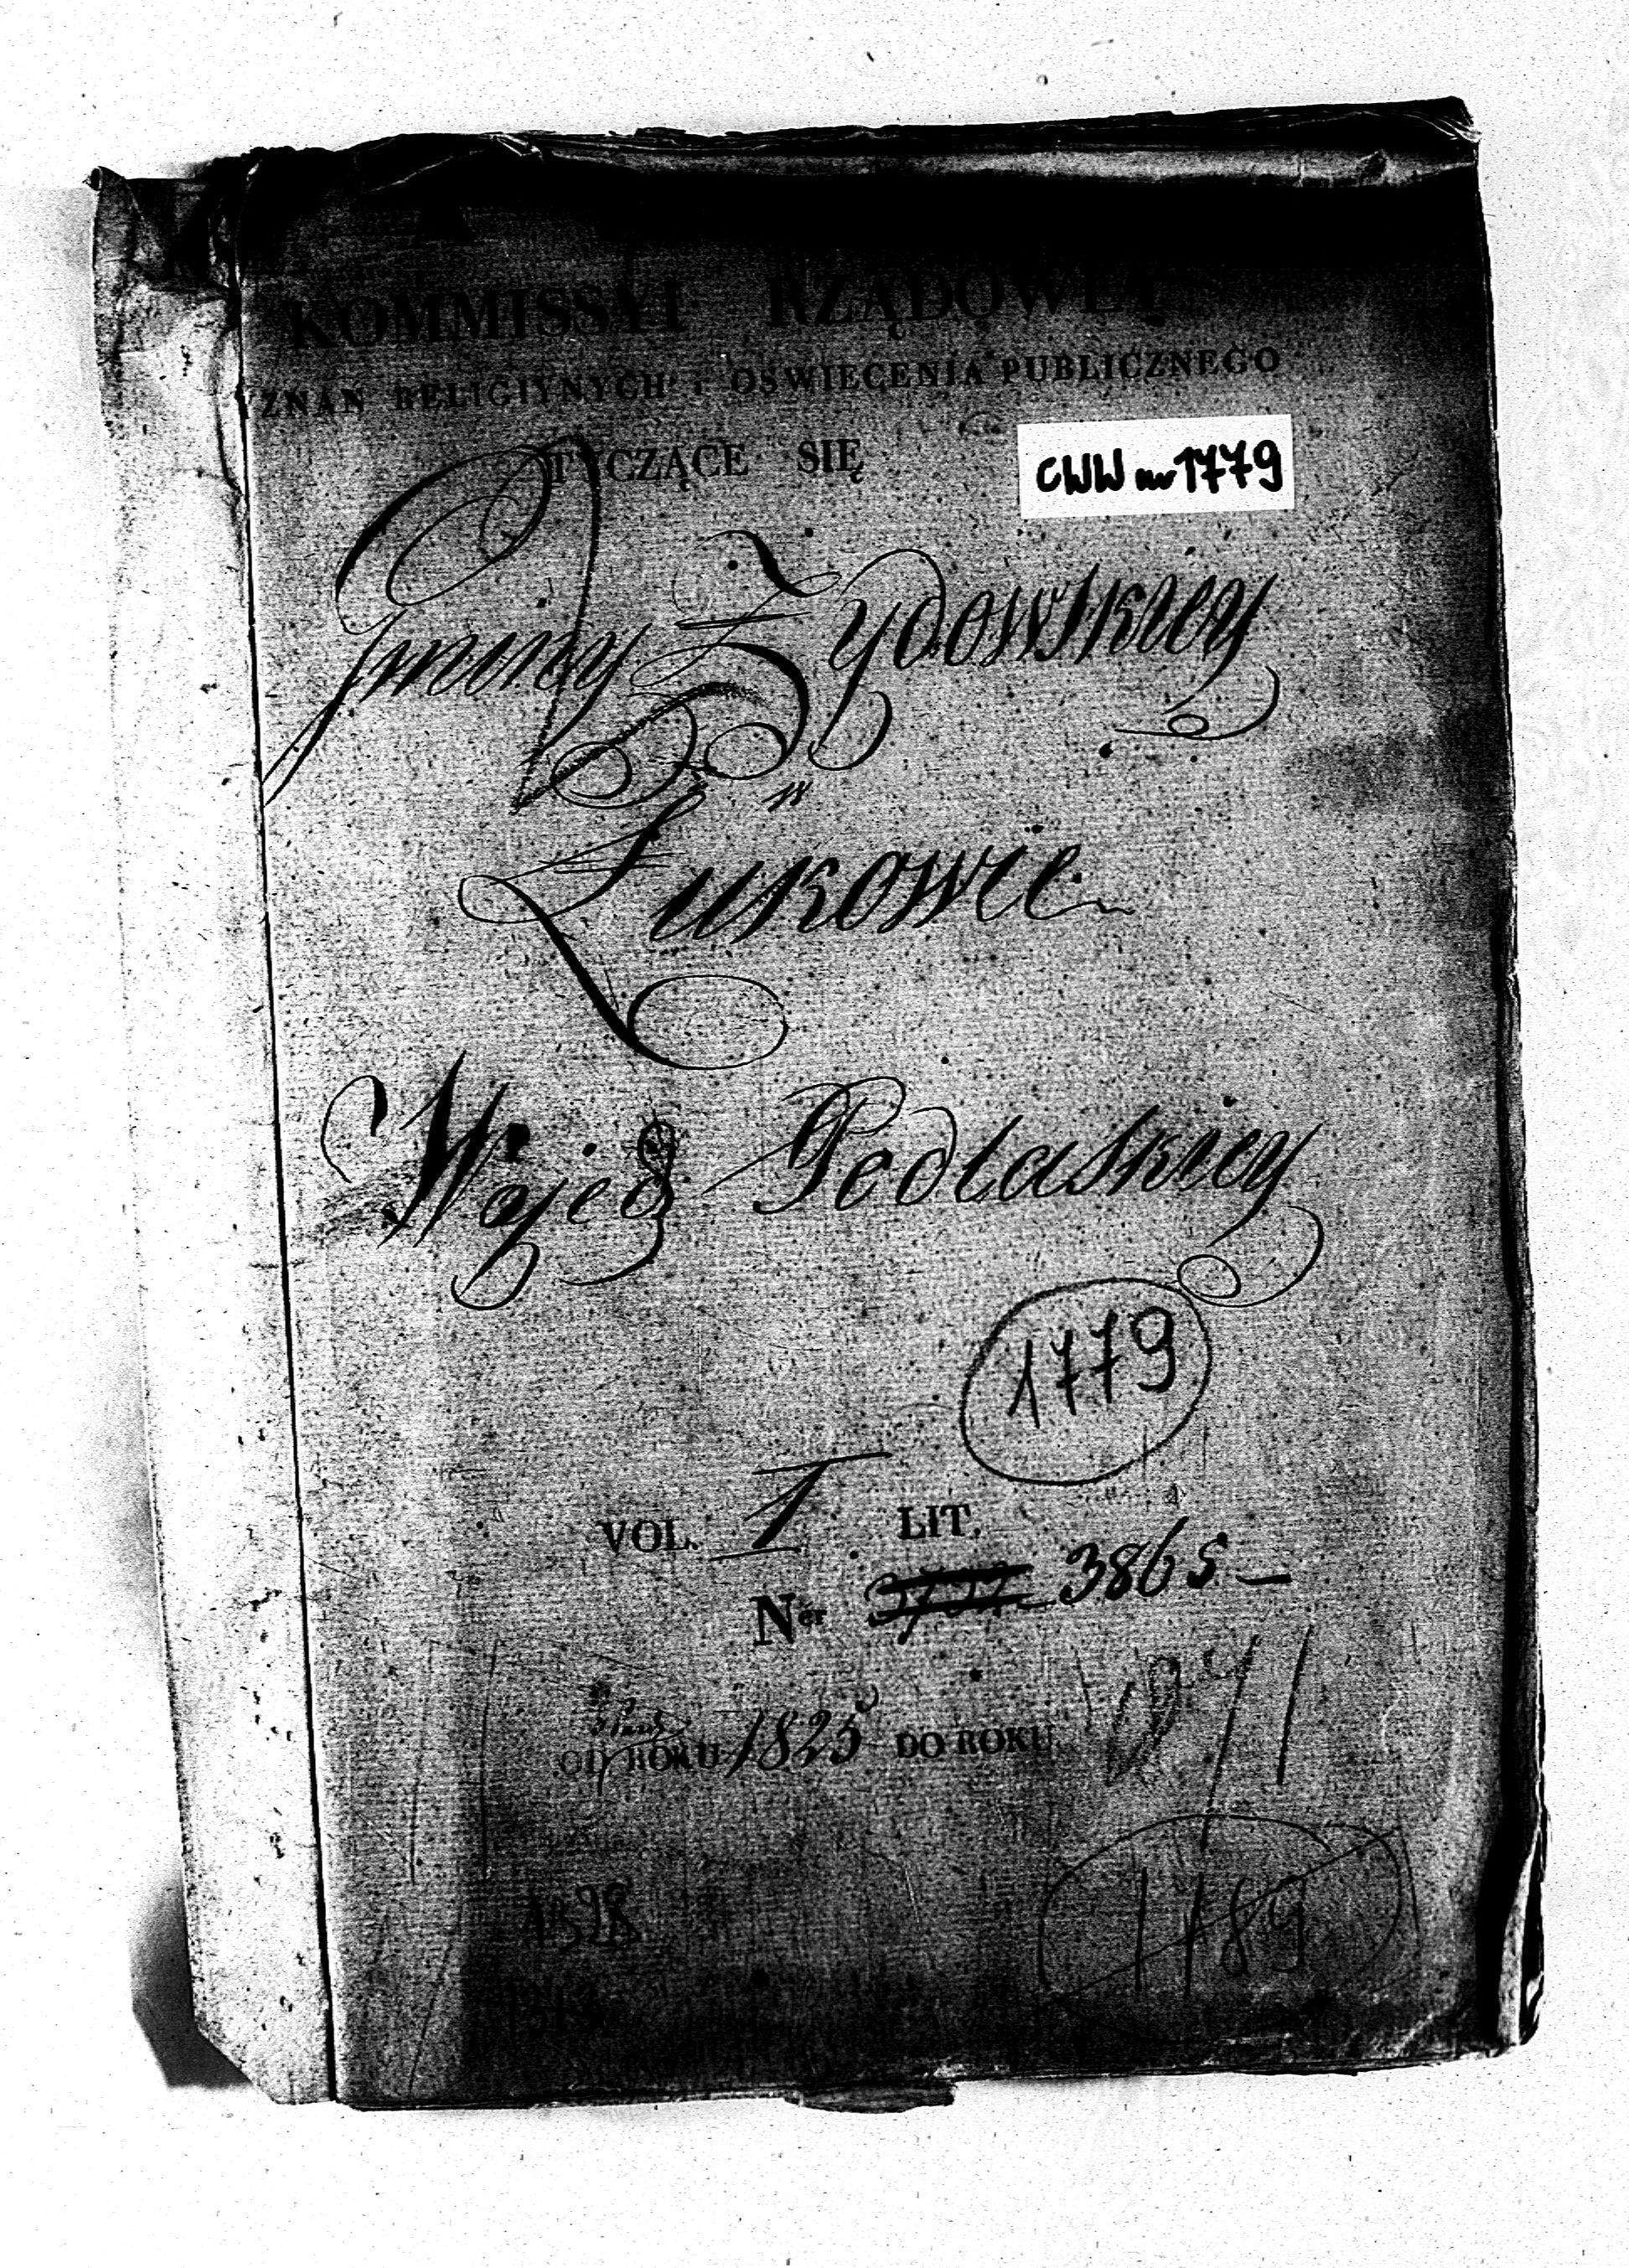 KOMMISSYI RZĄDOWEY
YZNAŃ RELIGIYNYCH i OŚWIECENIA PUBLICZNEGO
TYCZĄCE SIĘ
CWW nr 1779
Gminy Żydowskiey
w
Łukowie
Podlaskiey
1779
VOL. I LIT.
Ner 3865
OD ROKU 1825 DO ROKU
1789